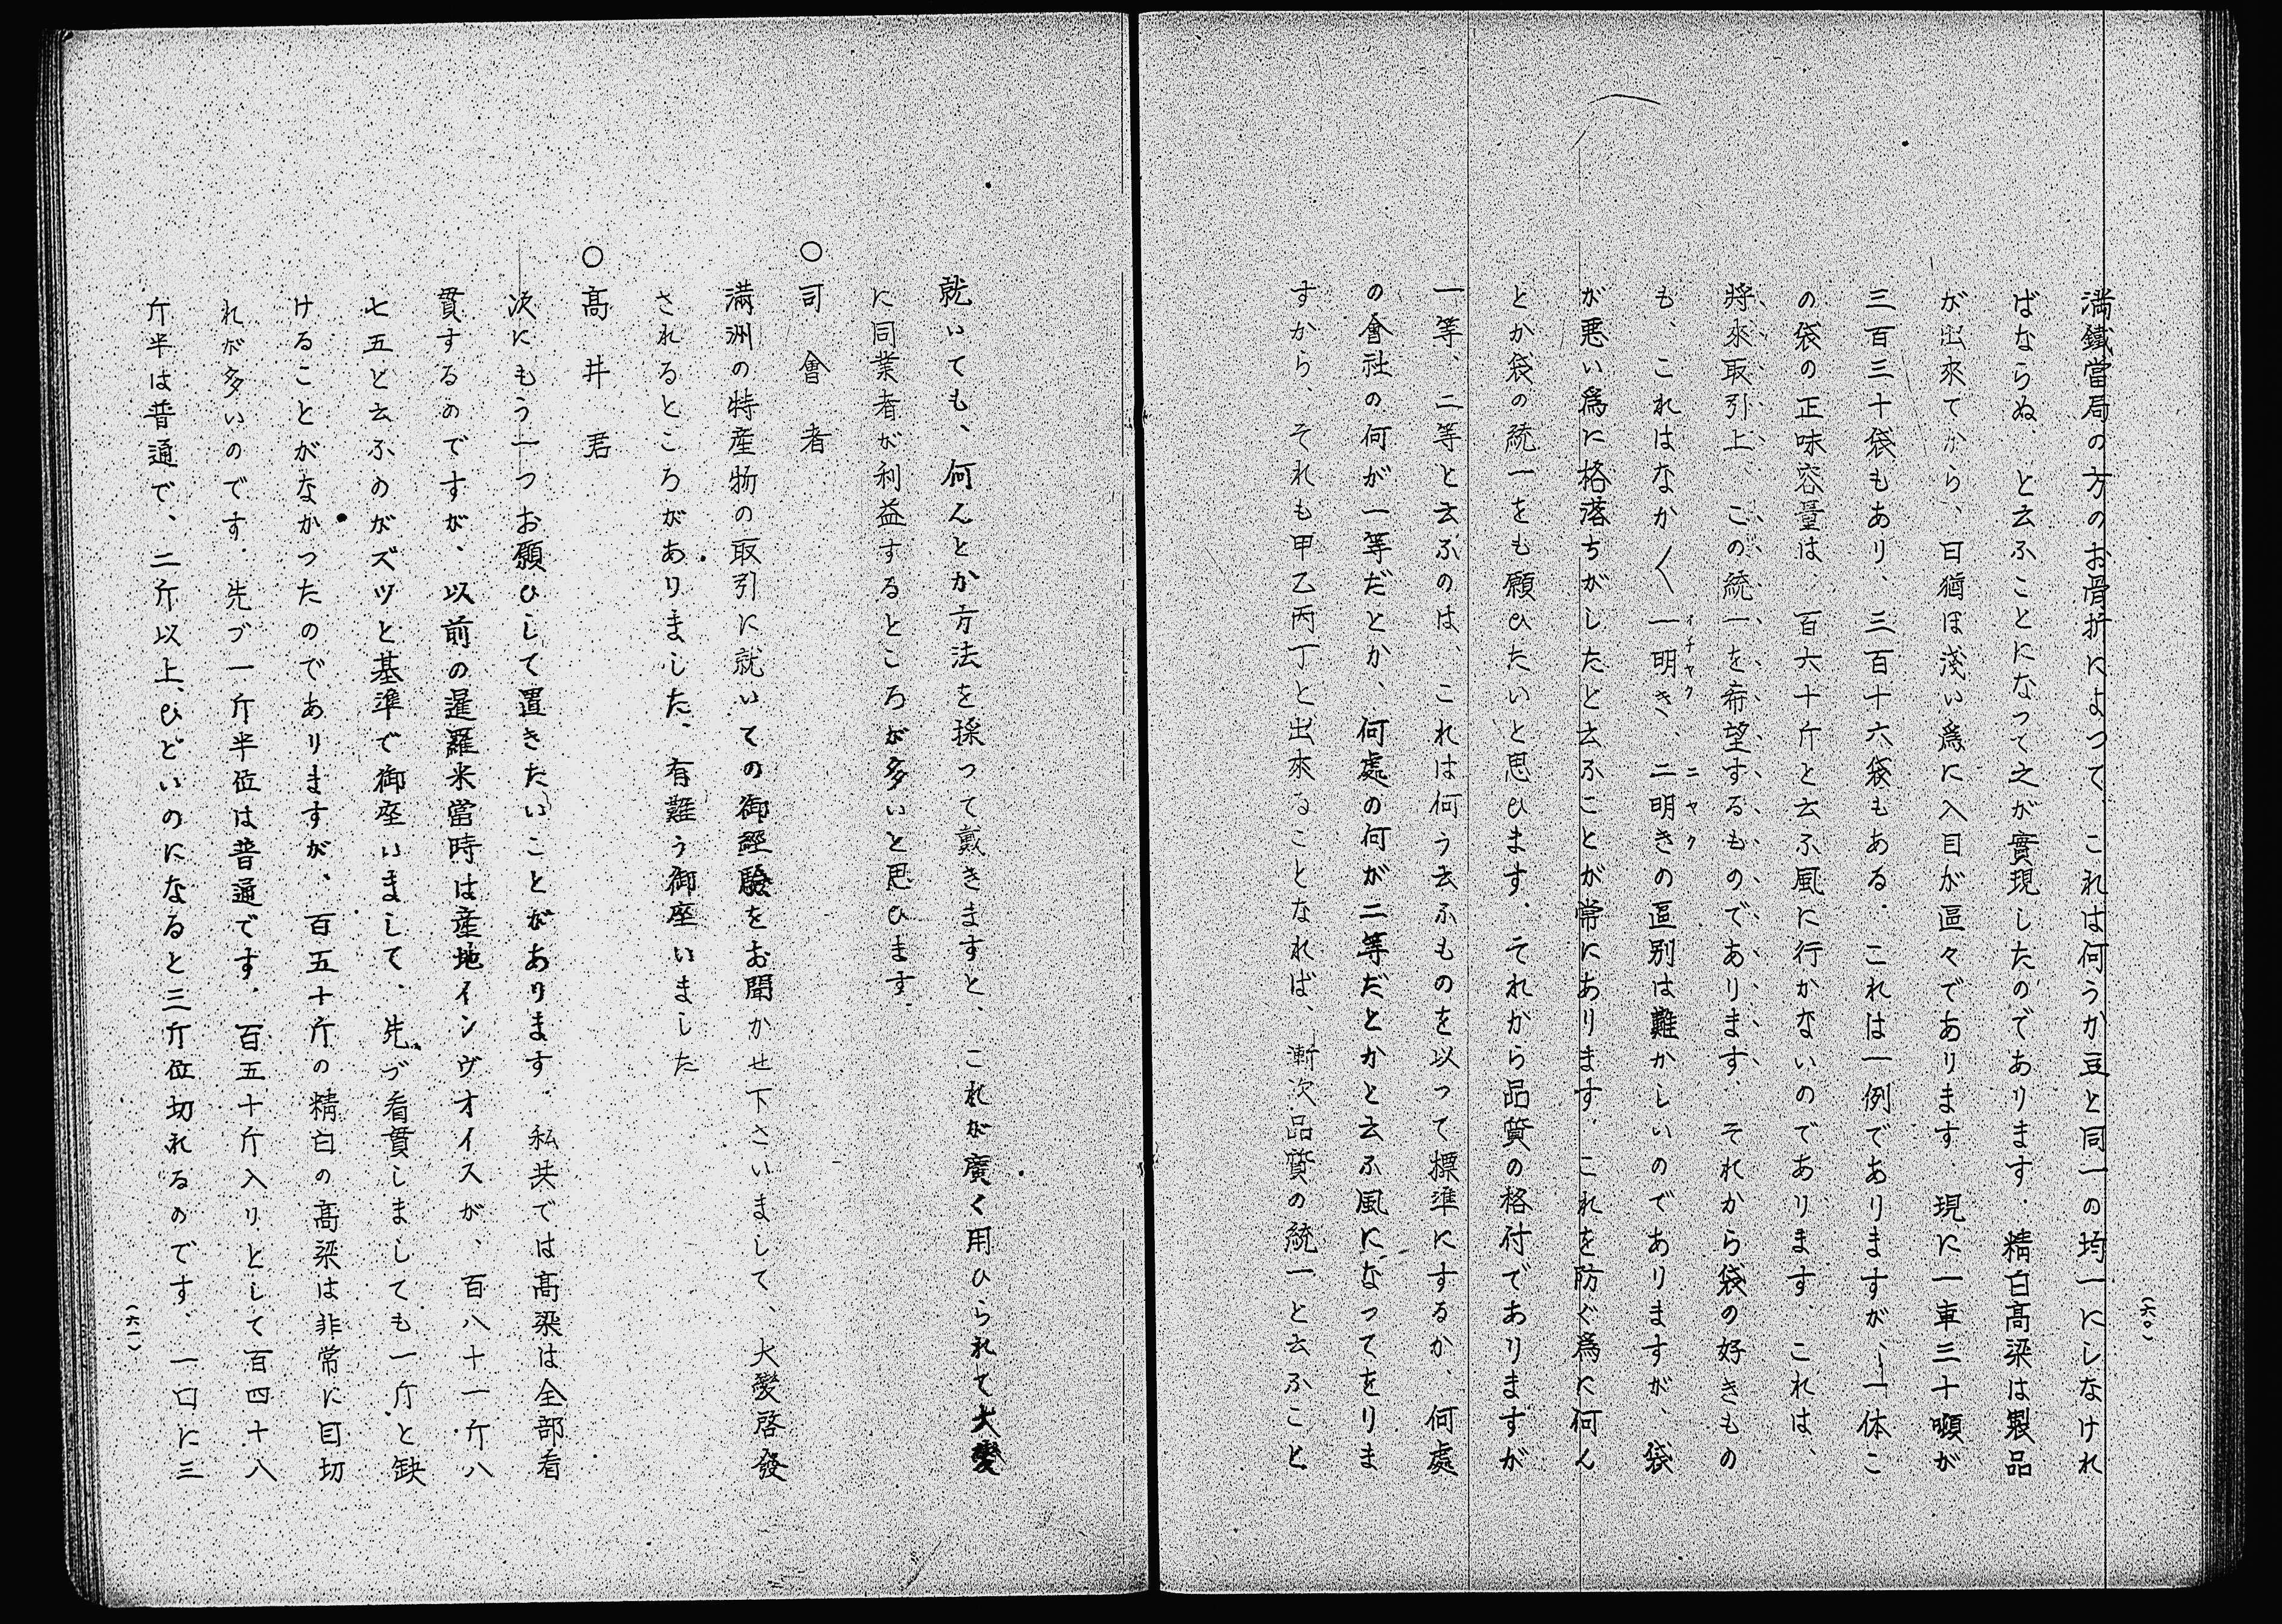 (六〇)
満鐵當局の方のお骨折によつて、これは何うか豆と同一の均一にしなけれ
ばならぬ、と云ふことになつて之が實現したのであります．精白高梁は製品
が出來てから、日猶ほ淺い爲に入目が區々であります．現に一車三十噸が
三百三十袋もあり、三百十六袋もある．これは一例でありますが、一体こ
の袋の正味容量は、百六十斤と云ふ風に行かないのであります．これは、
將來取引上、この統一を希望するものであります．それから袋の好きもの
も、これはなか〱一明き、二明きの區別は難かしいのでありますが、袋
イチヤク　ニヤク
が悪い爲に格落ちがしたと云ふことが常にあります．これを防ぐ爲に何ん
とか袋の統一をも願ひたいと思ひます．それから品質の格付でありますが
一等、二等と云ふのは、これは何う云ふものを以つて標準にするか、何處
の會社の何が一等だとか、何處の何が二等だとかと云ふ風になつてをりま
すから、それも甲乙丙丁と出來ることなれば、漸次品質の統一と云ふこと
就いても、何んとか方法を採つて戴きますと、これが廣く用ひられて大變
に同業者が利益するところが多いと思ひます．
○司會者
滿洲の特産物の取引に就いての御經驗をお聞かせ下さいまして、大變啓發
されるところがありました、有難う御座いました
○高井君
次にもう一つお願ひして置きたいことがあります．私共では高梁は全部看
貫するのですが、以前の暹羅米當時は産地インヴオイスが、百八十一斤八
七五と云ふのがズツと基準で御座いまして、先づ看貫しましても一斤と缺
けることがなかつたのでありますが、百五十斤の精白の高梁は非常に目切
れが多いのです．先づ一斤半位は普通です．百五十斤入りとして百四十八
斤半は普通で、二斤以上、ひどいのになると三斤位切れるのです．一口に三
(六一)